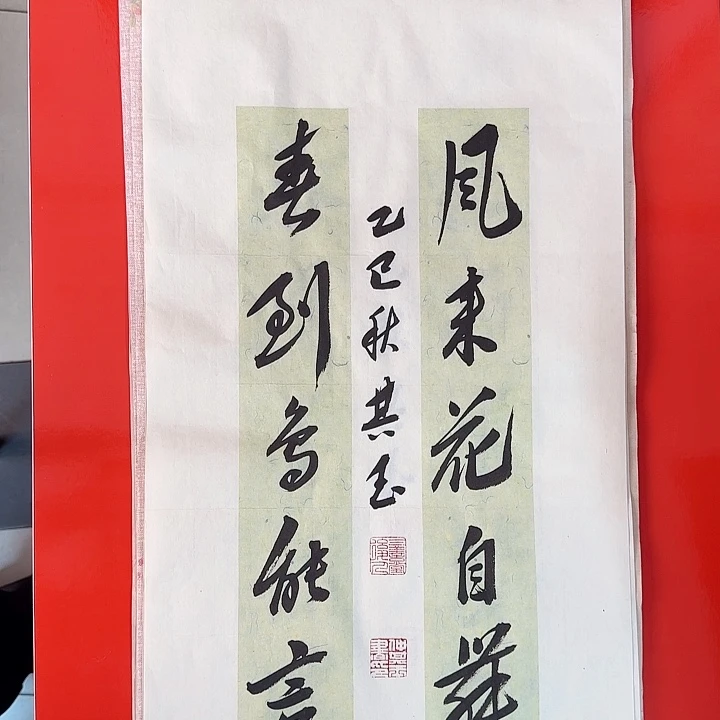 风来花自舞
春到鸟能言
乙巳秋其玉